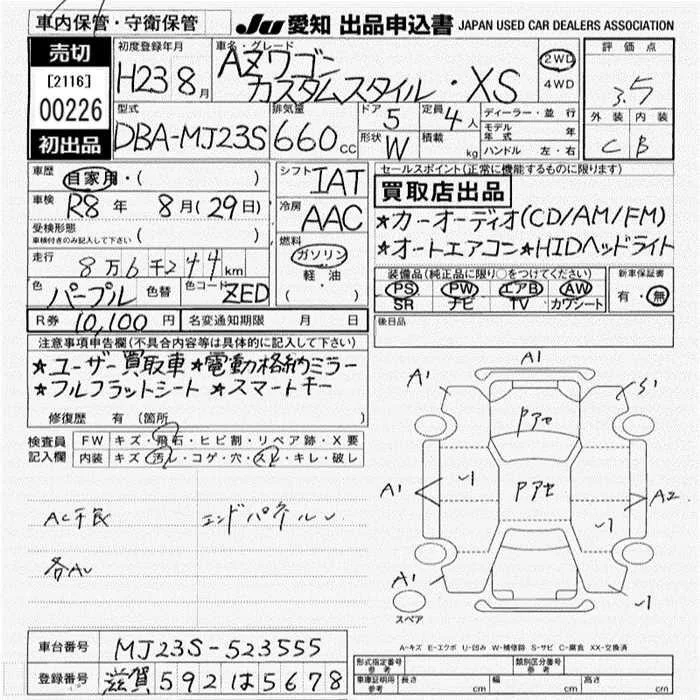 車内保管・守衛保管
JU 愛知 出品申込書 JAPAN USED CAR DEALERS ASSOCIATION
売切
[2116]
00226
初出品
初度登録年月
H23 8月
車名・グレード
AZワゴン
カスタムスタイル・XS
2WD
4WD
評価点
3.5
外装 内装
C B
型式
DBA-MJ23S
排気量
660cc
ドア 5
形状 W
定員 4人
積載 kg
ディーラー・並行
モデル年式 年
ハンドル 左・右
車歴 自家用・( )
車検 R8年 8月(29日)
受検形態
車検付きのみ記入して下さい ( )
走行 8万6千244km
色 パープル 色替 色コード ZED
R券 10,100円 名変通知期限 月 日
シフト IAT
冷房 AAC
燃料
ガソリン
軽油
( )
セールスポイント(正常に機能するものに限ります)
買取店出品
★カーオーディオ(CD/AM/FM)
★オートエアコン★HIDヘッドライト
装備品(純正品に限り○をつけてください)
PS PW エアB AW
SR ナビ TV カワシート
新車保証書
有・無
後日品
注意事項申告欄(不具合内容等は具体的に記入して下さい)
★ユーザー買取車★電動格納ミラー
★フルフラットシート ★スマートキー
修復歴 有(箇所 )
検査員記入欄
FW キズ・飛石・ヒビ割・リペア跡・X要
内装 キズ・汚れ・コゲ・穴・スレ・キレ・破レ
AC不良 エンドパネル
A1
A1
S1
Pアセ
A1
Pアセ
A2
A1
スペア
A-キズ E-エクボ U-凹み W-補修跡 S-サビ C-腐食 XX-交換済
車台番号 MJ23S-523555
登録番号 滋賀 592 は 5678
形式指定番号 参考
類別区分番号 参考
車庫証明用 参考 長さ cm 幅 cm 高さ cm